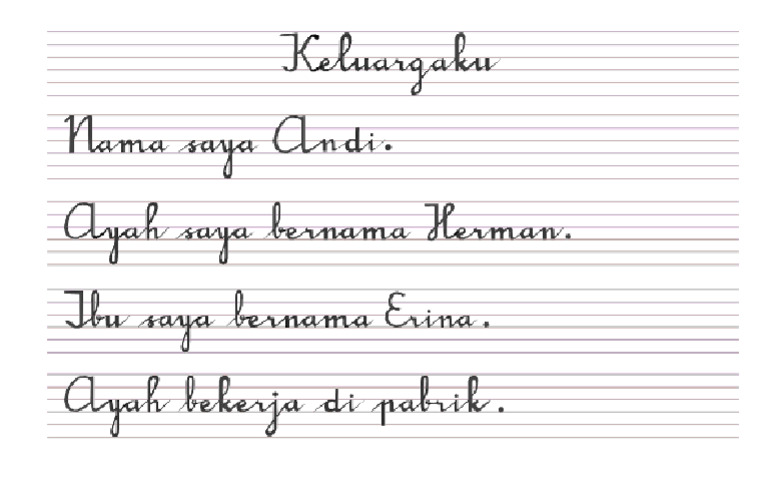 Keluargaku
Nama saya Andi.
Ayah saya bernama Herman.
Ibu saya bernama Erina.
Ayah bekerja di pabrik.